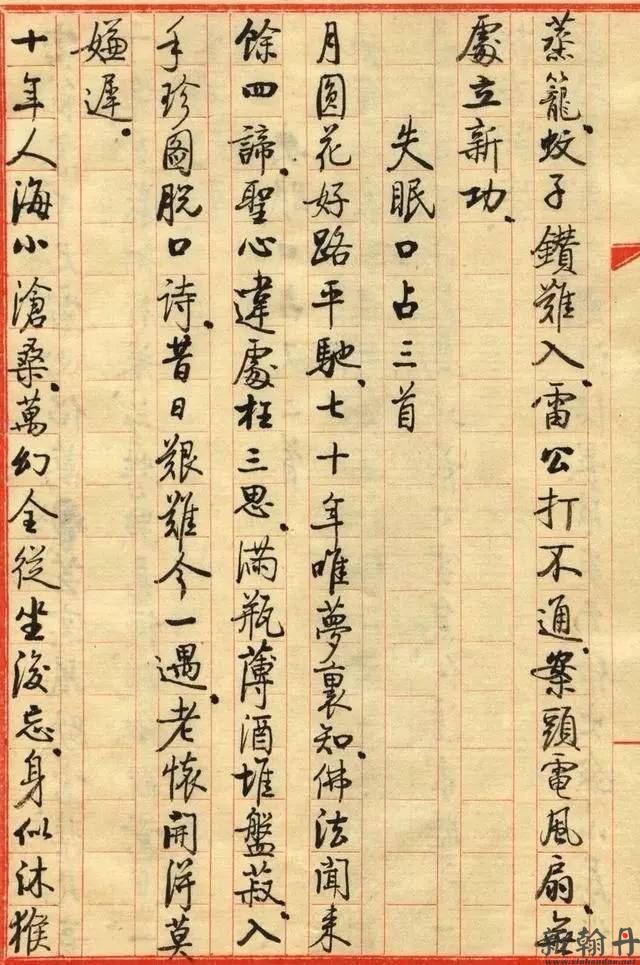 蒸籠、蚊子鑽難入、雷公打不通、案頭電風扇、無
處立新功、
失眠口占三首
月圓花好路平馳、七十年唯夢裏知、佛法聞来
餘四諦、聖心違處枉三思、滿瓶薄酒堆盤菽、入
手珍圖脫口诗、昔日艱難今一遇、老懷開得莫
嫌遲、
十年人海小滄桑、萬幻全從坐後忘、身似沐猴
新翰丹